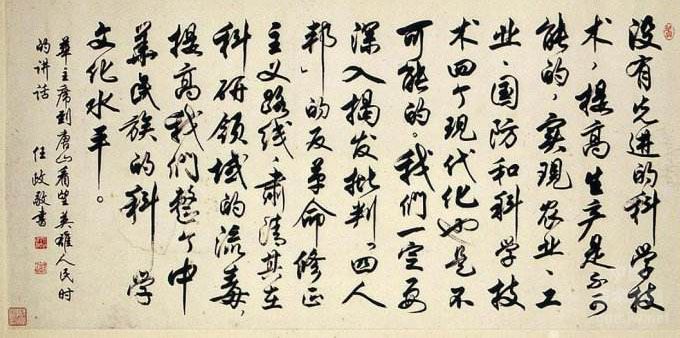 没有先进的科学技
术，提高生产是不可
能的，实现农业、工
业、国防和科学技
术四个现代化也是不
可能的。我们一定要
深入揭发批判「四人
邦」的反革命修正
主义路线，肃清其在
科研领域的流毒，
提高我们整个中
華民族的科学
文化水平。
華主席到唐山看望英雄人民时
的讲话 任政敬书